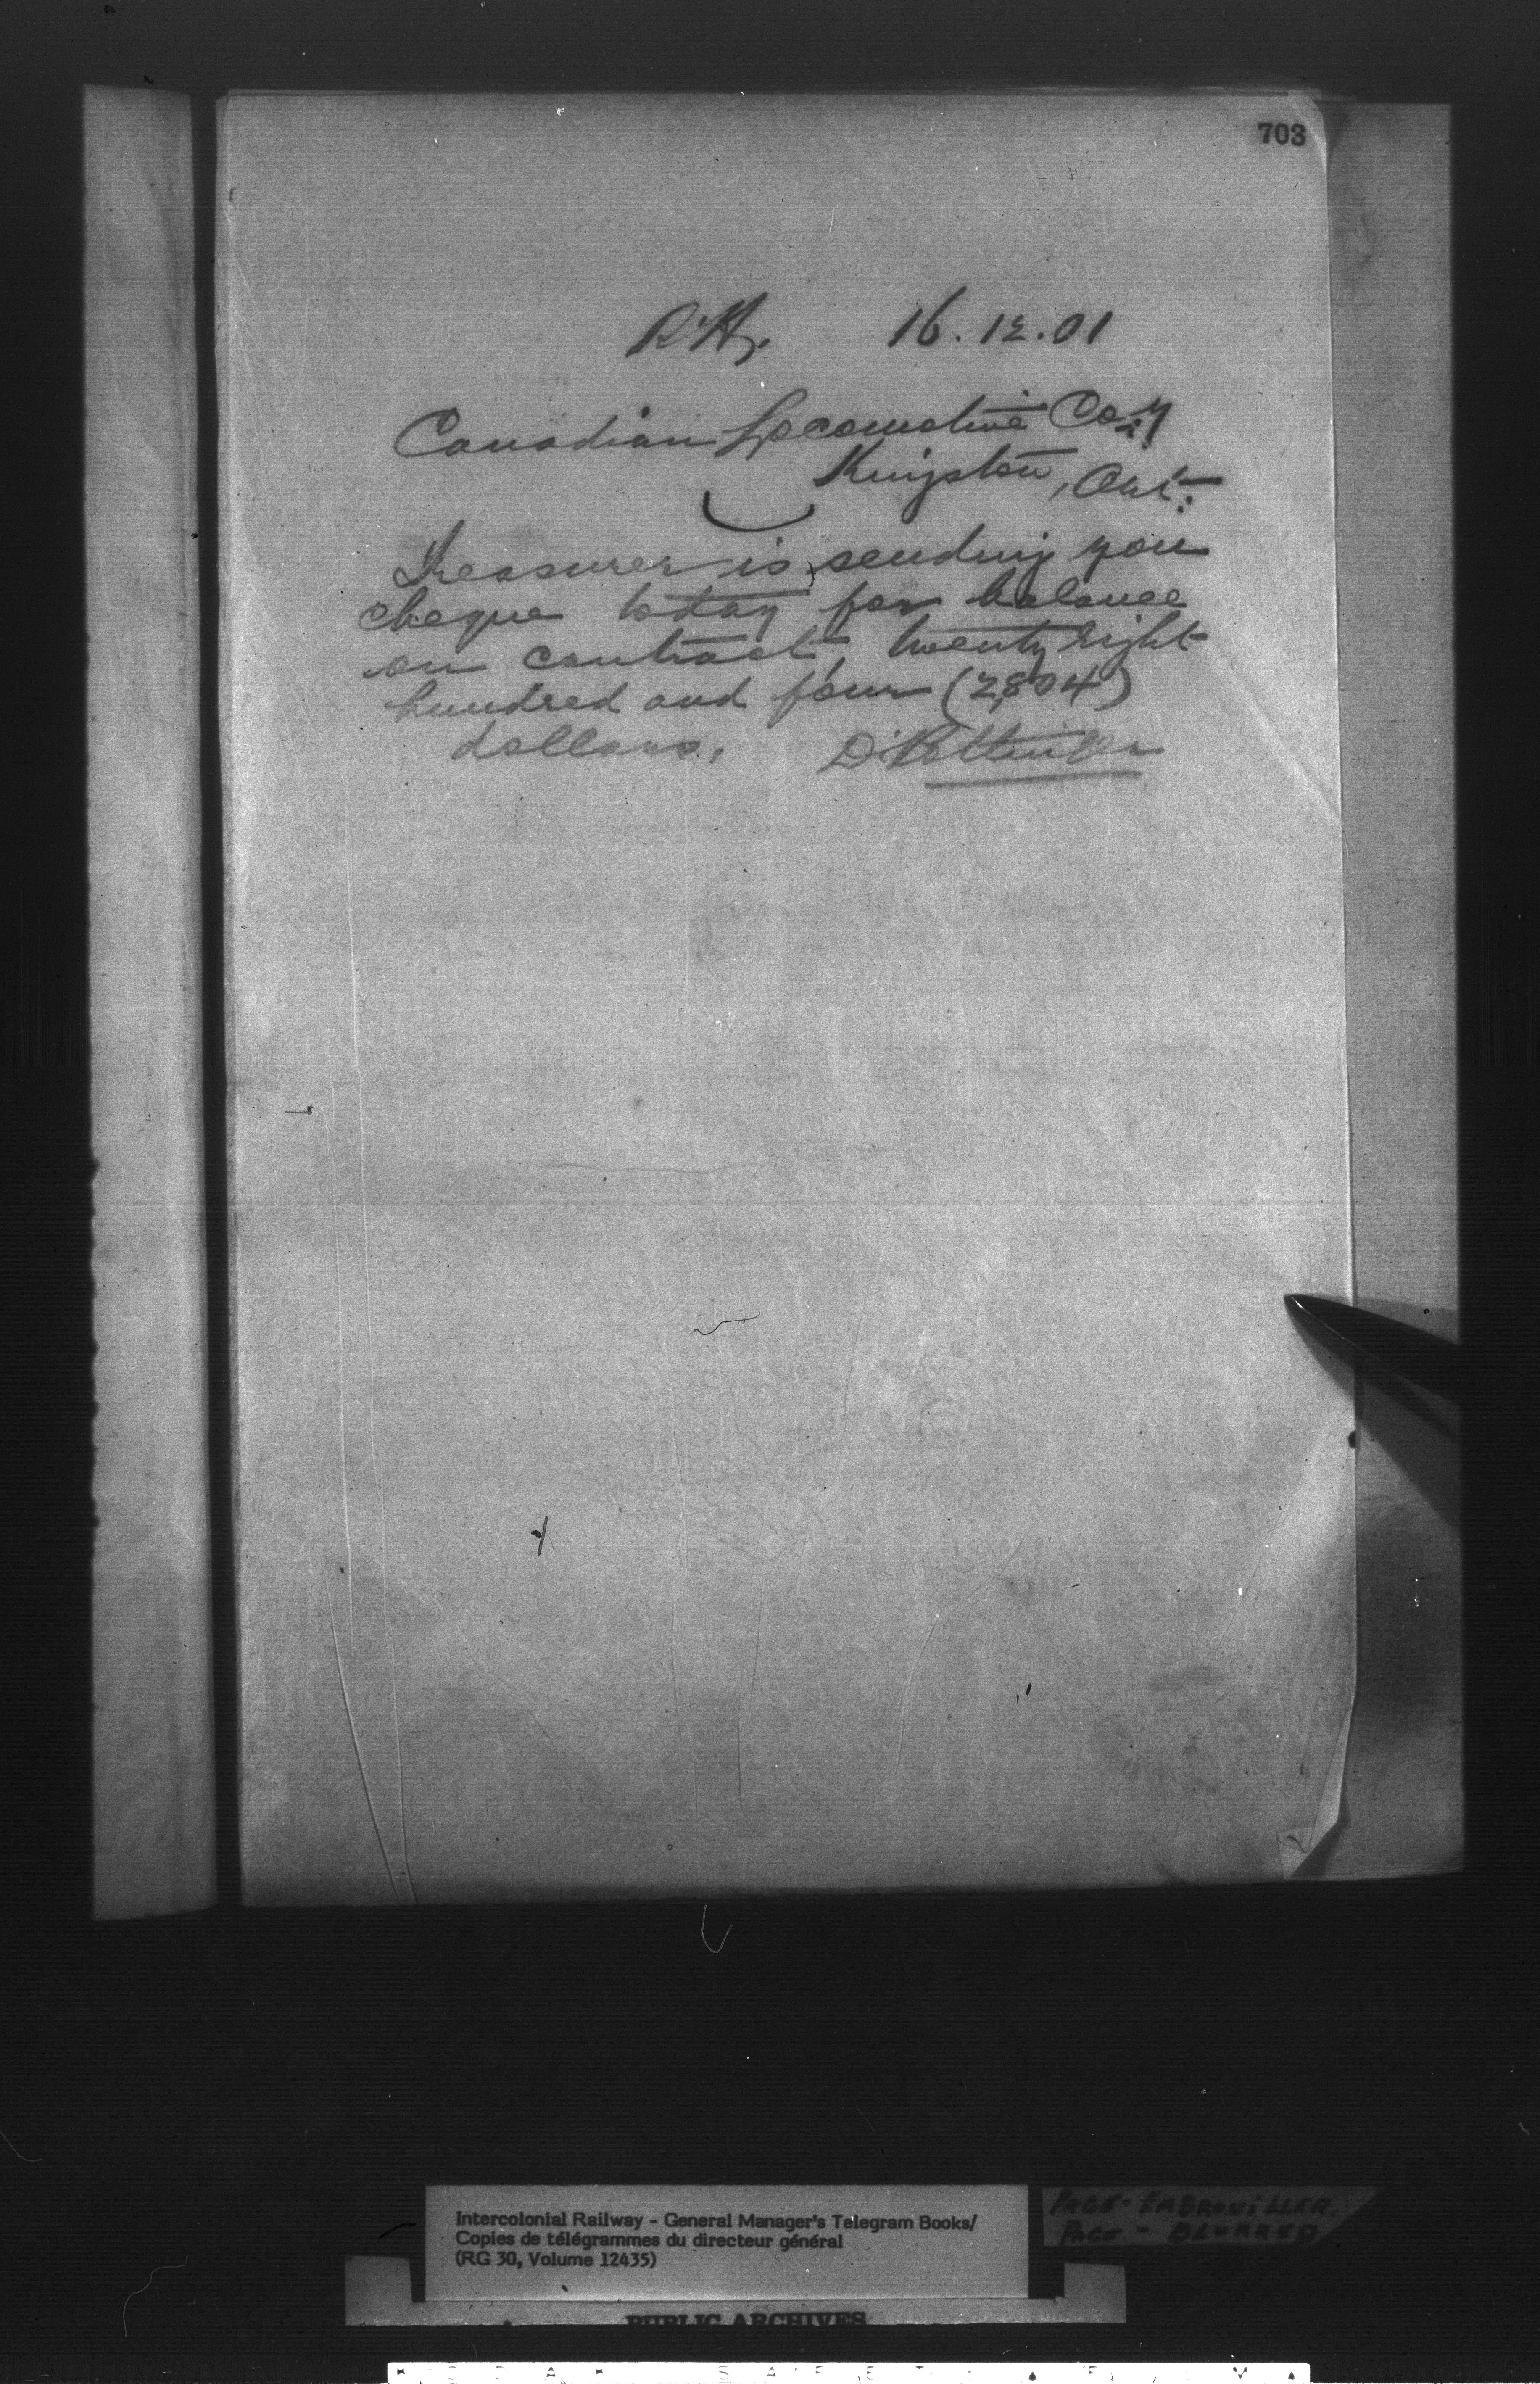 703
16.12.01
Canadian Locomotive Coy
Kingston, Ont.
Treasurer is sending you
cheque today for balance
on contract, twenty eight
hundred and four (2,804)
dollars. D. Pottinger
Intercolonial Railway - General Manager's Telegram Books/
Copies de télégrammes du directeur général
(RG 30, Volume 12435)
PAGE - EMBROUILLER.
PAGE - BLURRED
PUBLIC ARCHIVES